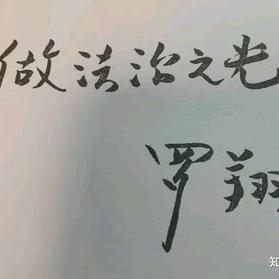 做法治之光
罗翔
知